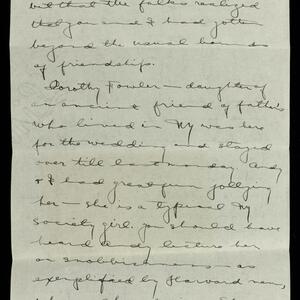 but that the folks realized
that you and I had gotten
beyond the usual bounds
of friendship.
Dorothy Fowler – daughter of
an eminent friend of father's
who lived in NY was here
for the wedding and stayed
over till last monday. Andy
& I had great fun jollying
her – she is a typical NY
society girl. You should have
heard Andy lecture her
on snobbishness – as
exemplified by Harvard men,